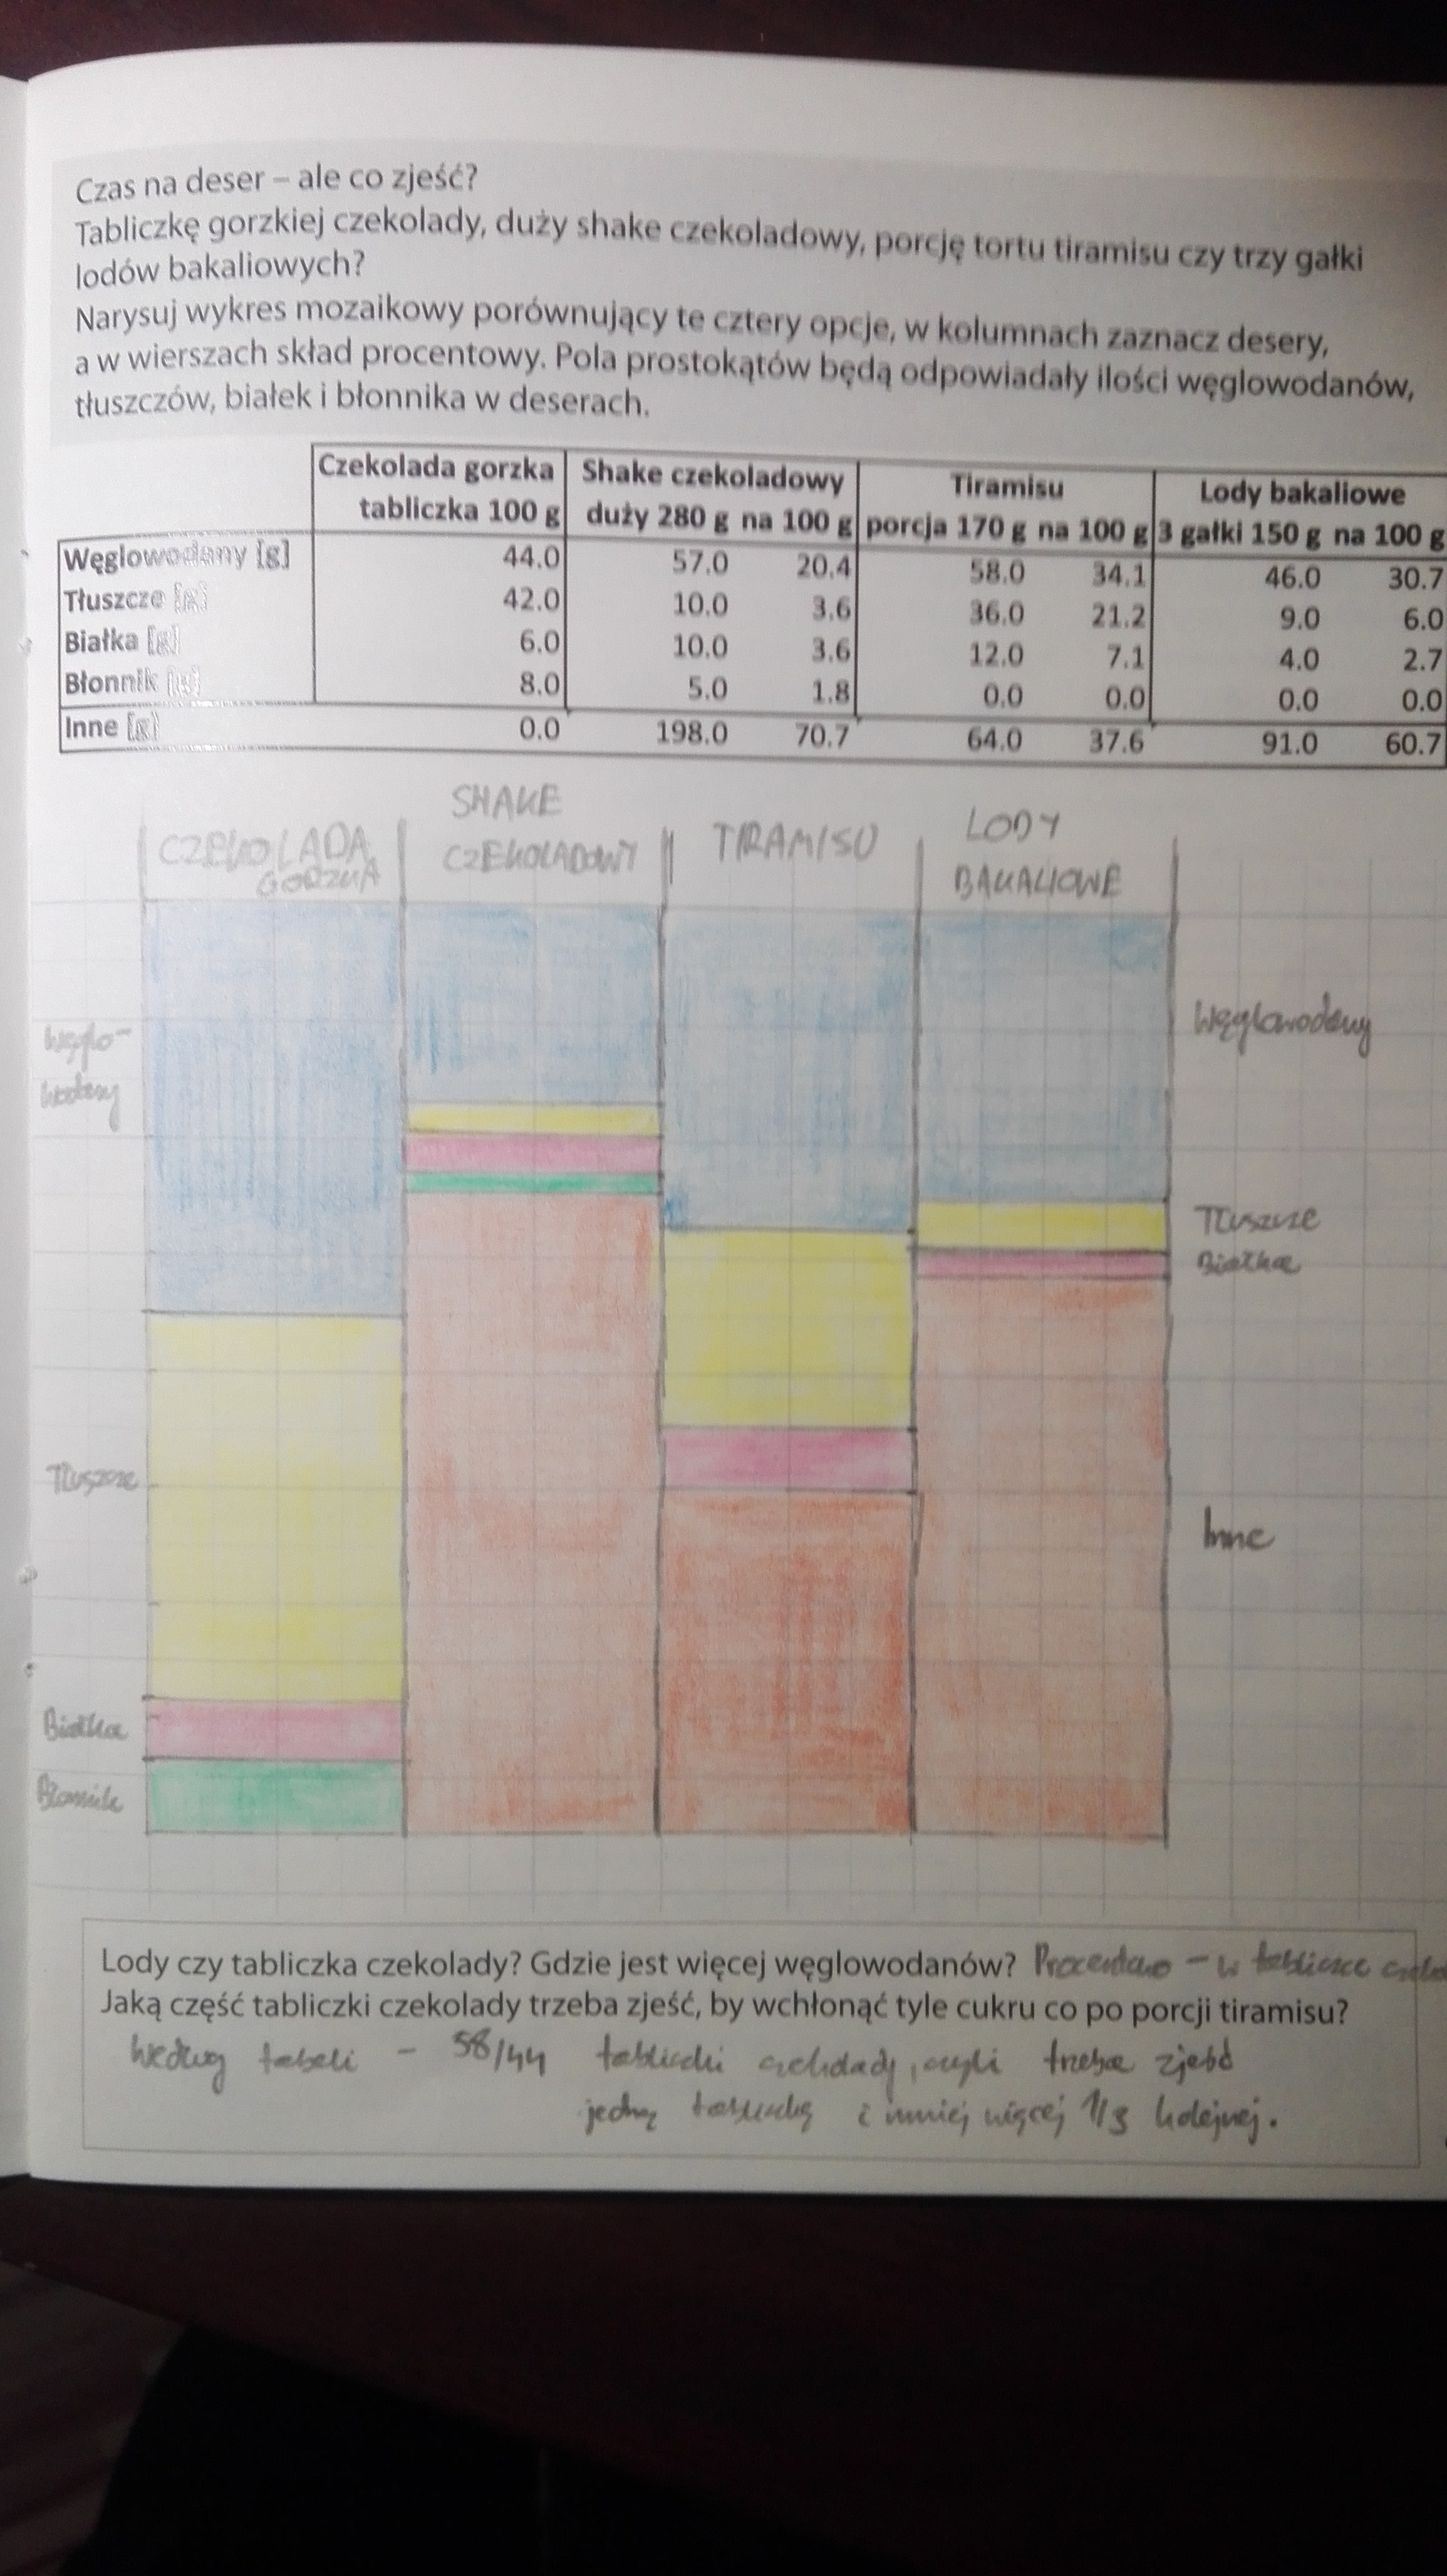 Czas na deser – ale co zjeść?
Tabliczkę gorzkiej czekolady, duży shake czekoladowy, porcję tortu tiramisu czy trzy gałki
lodów bakaliowych?
Narysuj wykres mozaikowy porównujący te cztery opcje, w kolumnach zaznacz desery,
a w wierszach skład procentowy. Pola prostokątów będą odpowiadały ilości węglowodanów,
tłuszczów, białek i błonnika w deserach.
Czekolada gorzka Shake czekoladowy Tiramisu Lody bakaliowe
tabliczka 100 g duży 280 g na 100 g porcja 170 g na 100 g 3 gałki 150 g na 100 g
Węglowodany [g] 44.0 57.0 20.4 58.0 34.1 46.0 30.7
Tłuszcze [g] 42.0 10.0 3.6 36.0 21.2 9.0 6.0
Białka [g] 6.0 10.0 3.6 12.0 7.1 4.0 2.7
Błonnik [g] 8.0 5.0 1.8 0.0 0.0 0.0 0.0
Inne [g] 0.0 198.0 70.7 64.0 37.6 91.0 60.7
CZEKOLADA
GORZKA
SHAKE
CZEKOLADOWY
TIRAMISU
LODY
BAKALIOWE
Węglo-
wodany
Węglowodany
Tłuszcze
Białka
Tłuszcze
Inne
Białka
Błonnik
Lody czy tabliczka czekolady? Gdzie jest więcej węglowodanów? Procentowo – w tabliczce
Jaką część tabliczki czekolady trzeba zjeść, by wchłonąć tyle cukru co po porcji tiramisu?
Według tabeli – 58/44 tabliczki czekolady, czyli trzeba zjeść
jedną tabliczkę i mniej więcej 1/3 kolejnej.